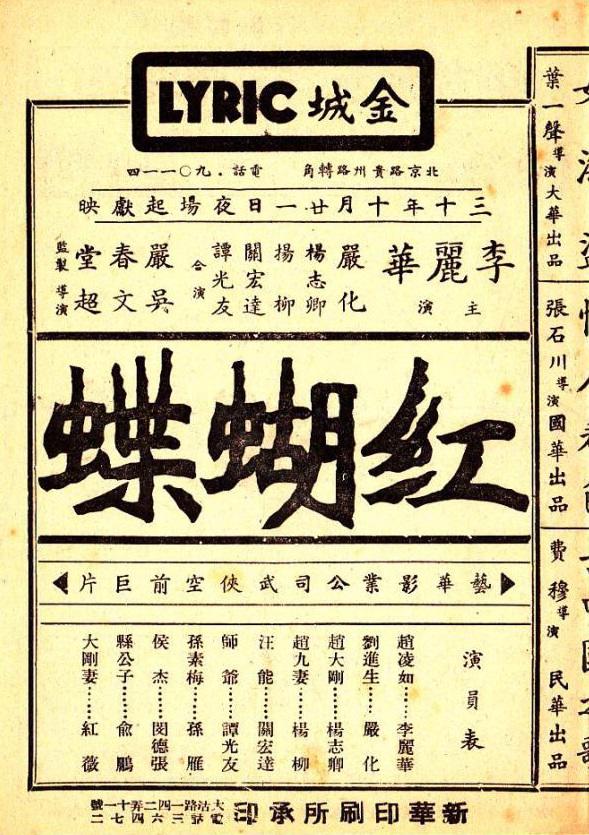 金城 LYRIC
北京路貴州路轉角 電話．九〇一一四
三十年十月廿一日夜場起獻映
李麗華 主演
嚴化
楊志卿
揚柳
關宏達
譚光友
合演
嚴春堂 監製
吳文超 導演
紅蝴蝶
藝華影業公司武俠空前巨片
演員表
趙凌如……李麗華
劉進生……嚴化
趙大剛……楊志卿
趙九妻……楊柳
汪能……關宏達
師爺……譚光友
孫素梅……孫雁
侯杰……閔德張
縣公子……俞鵬
大剛妻……紅薇
新華印刷所承印
大沽路一四二弄十一號
電話三六四七二
葉一聲導演 大華出品
張石川導演 國華出品
費穆導演 民華出品